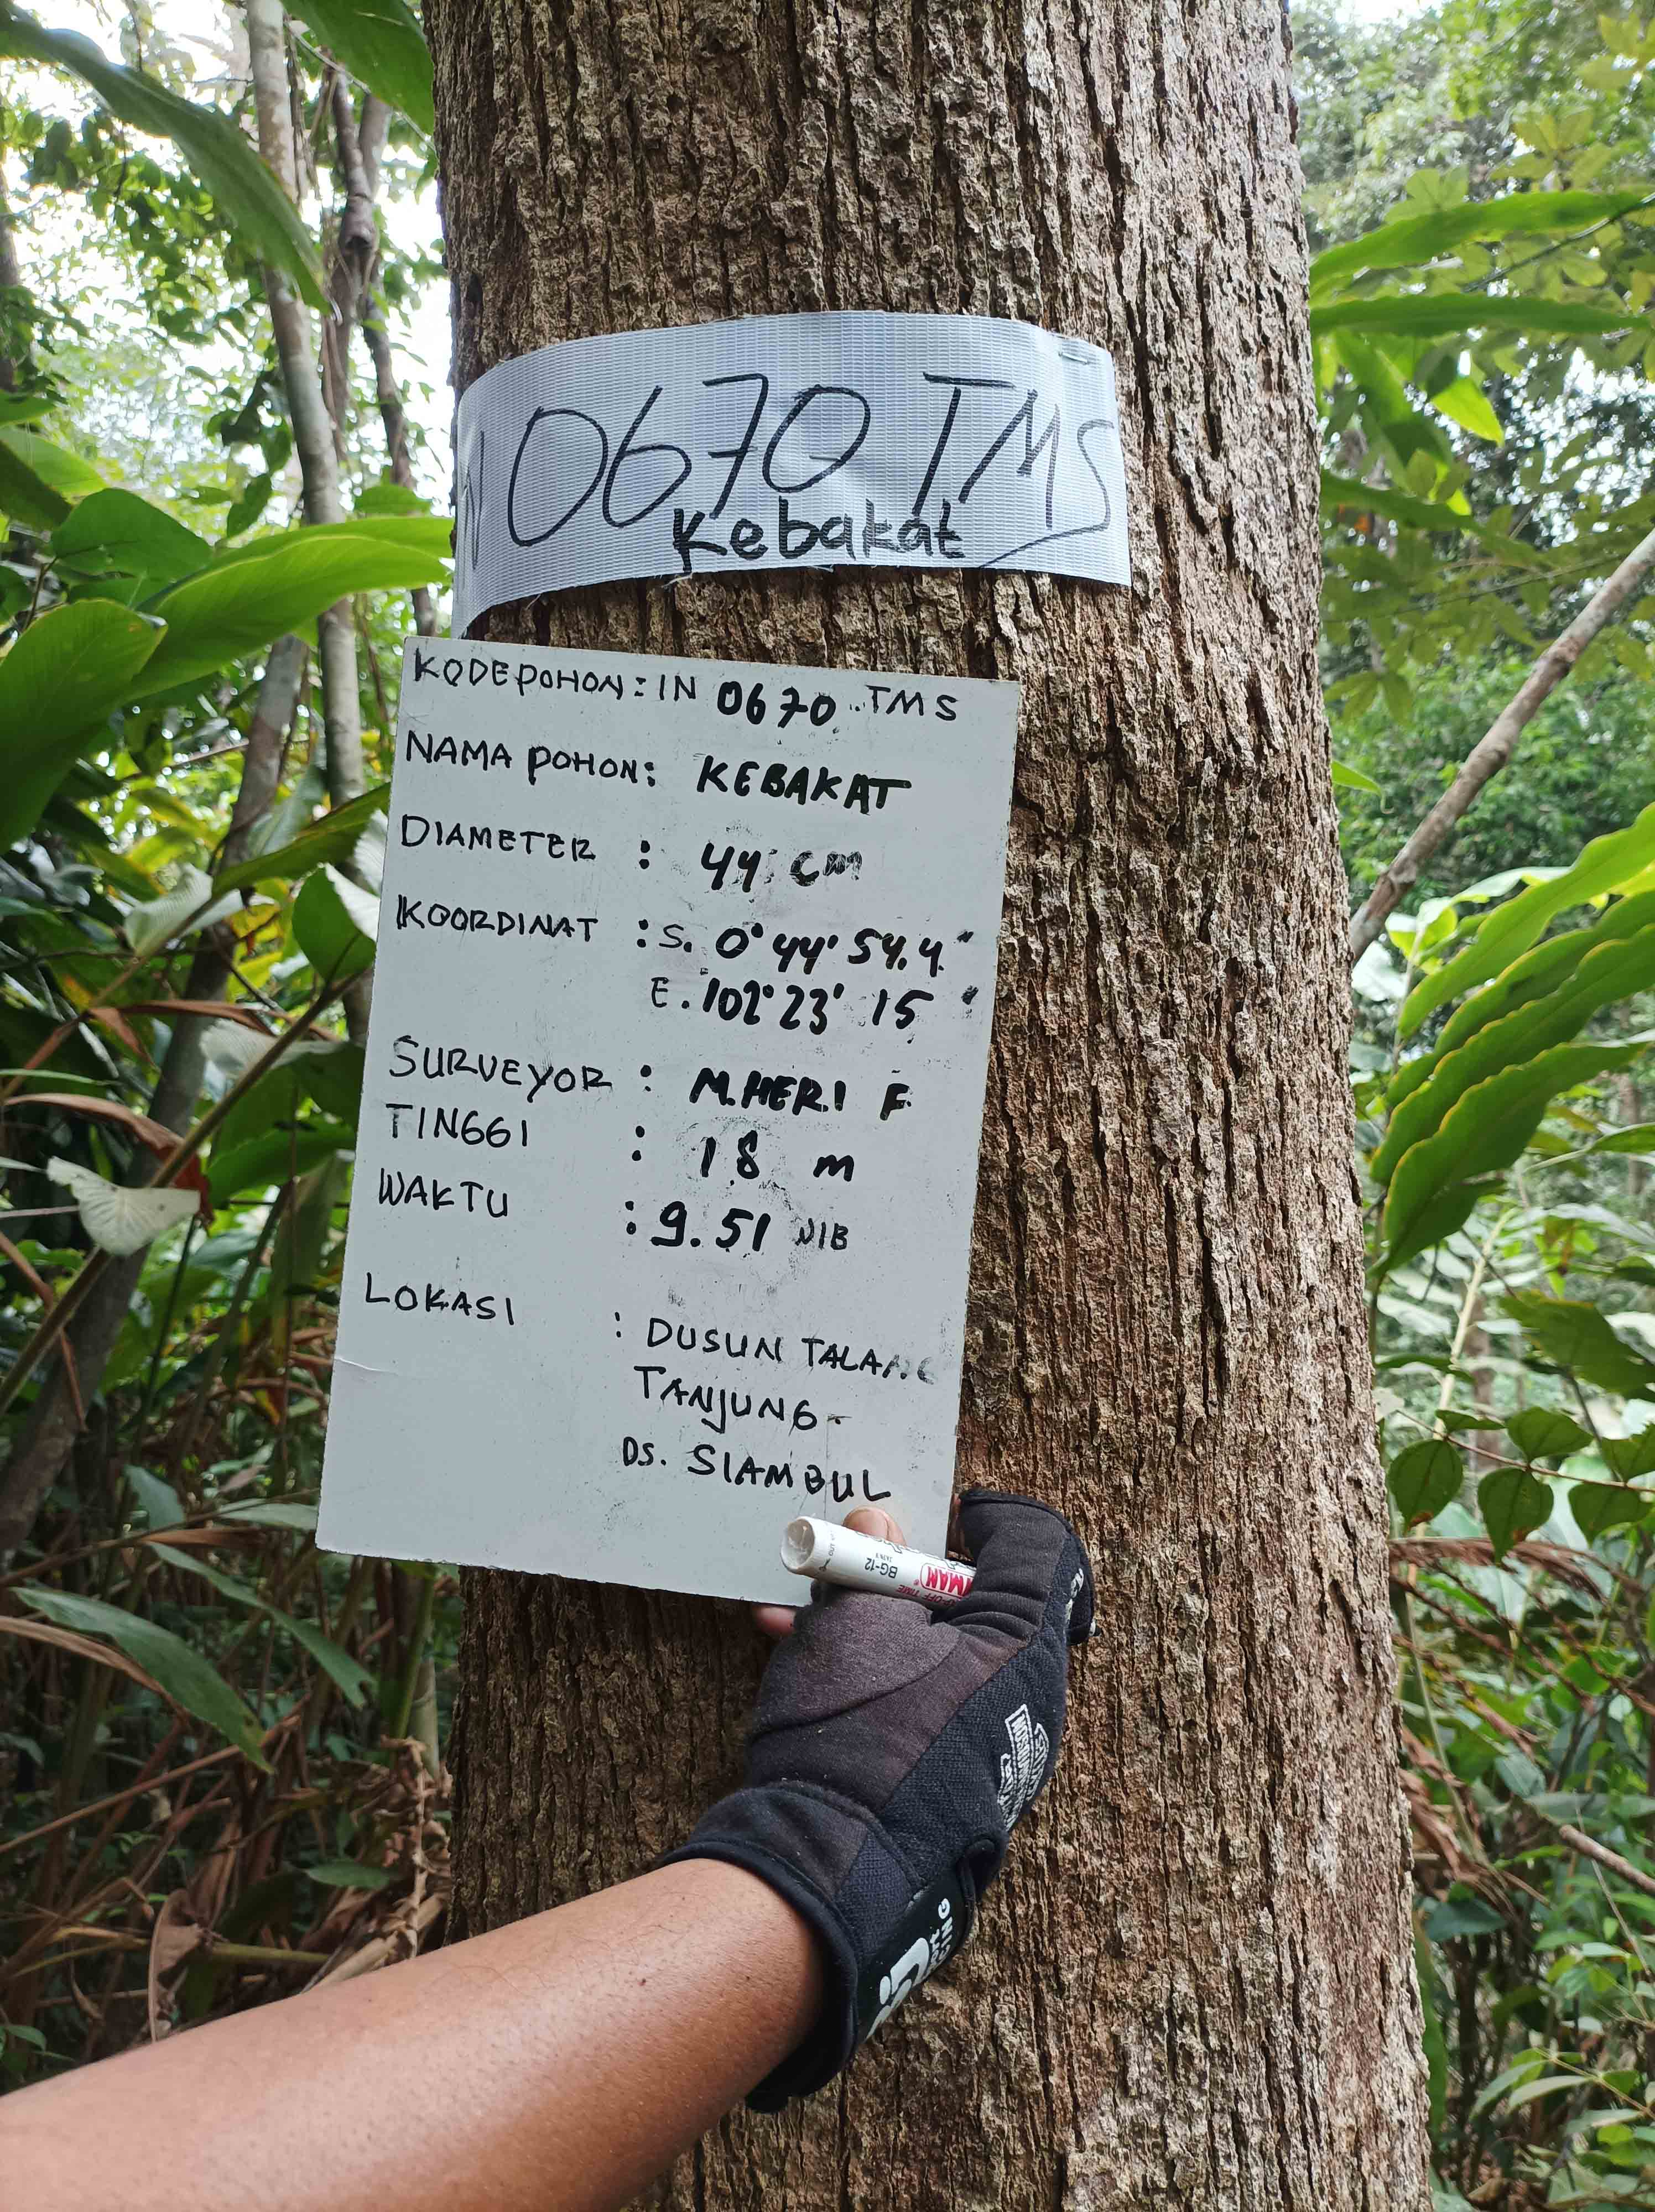 N 0670 TMS
Kebakat
KODE POHON : IN 0670 ..TMS
NAMA POHON : KEBAKAT
DIAMETER : 44 CM
KOORDINAT : S. 0° 44' 54.4"
E. 102° 23' 15"
SURVEYOR : M.HERI F.
TINGGI : 18 m
WAKTU : 9.51 WIB
LOKASI : DUSUN TALANG
TANJUNG -
DS. SIAMBUL
BG-12